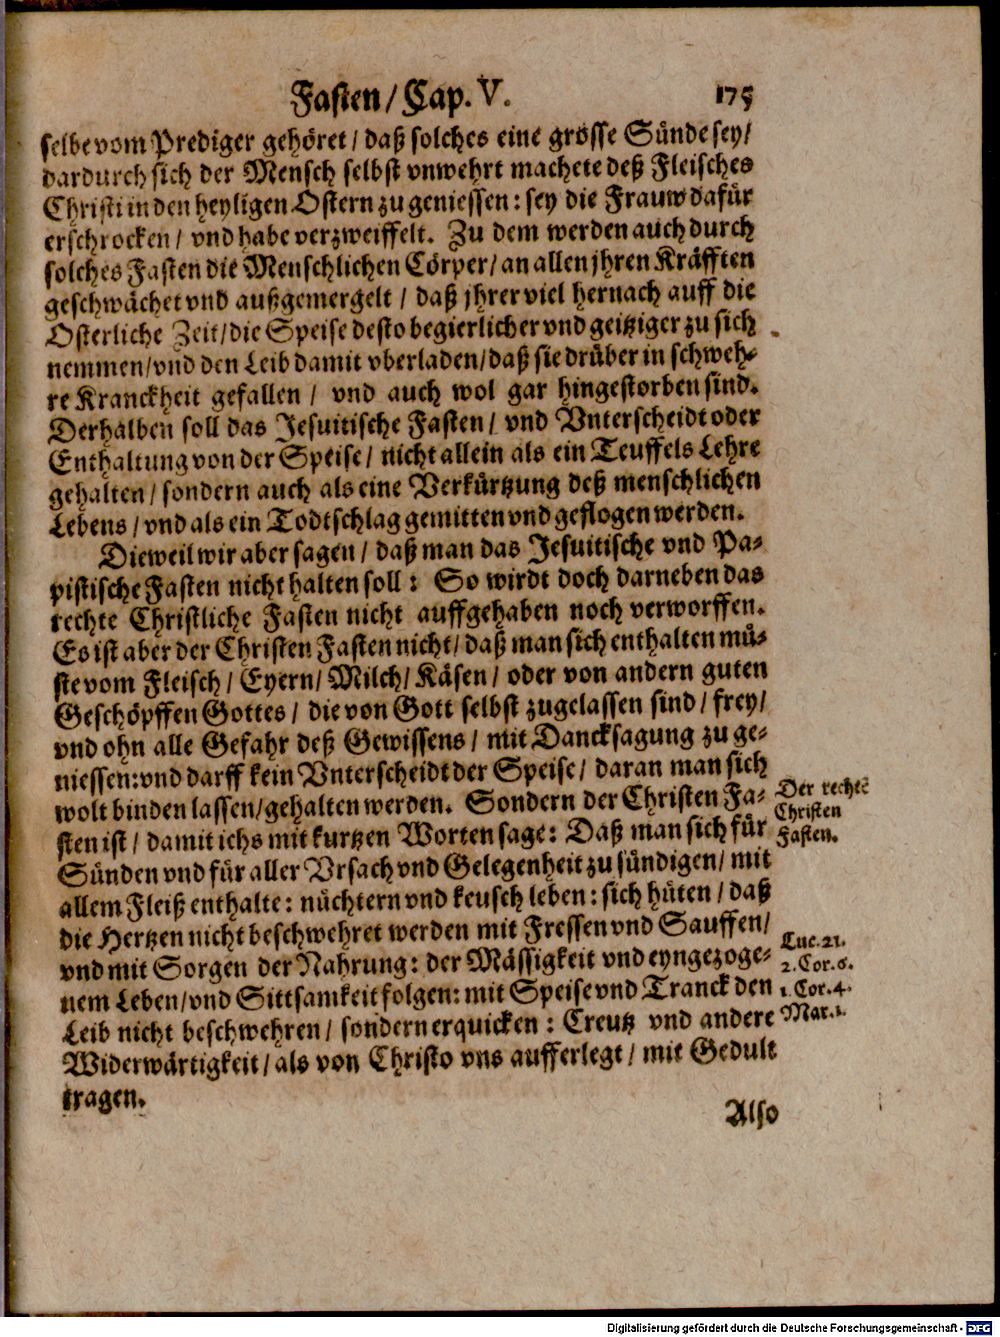 Fasten / Cap. V. 175
selbe vom Prediger gehöret / daß solches eine grösse Sünde sey /
dardurch sich der Mensch selbst vnwehrt machete deß Fleisches
Christi in den heyligen Ostern zu geniessen: sey die Frauw dafür
erschrocken / vnd habe verzweiffelt. Zu dem werden auch durch
solches Fasten die Menschlichen Cörper / an allen jhren Kräfften
geschwächet vnd außgemergelt / daß jhrer viel hernach auff die
Osterliche Zeit / die Speise desto begierlicher vnd geitziger zu sich
nemmen / vnd den Leib damit vberladen / daß sie drüber in schweh-
re Kranckheit gefallen / vnd auch wol gar hingestorben sind.
Derhalben soll das Jesuitische Fasten / vnd Vnterscheidt oder
Enthaltung von der Speise / nicht allein als ein Teuffels Lehre
gehalten / sondern auch als eine Verkürtzung deß menschlichen
Lebens / vnd als ein Todtschlag gemitten vnd geflogen werden.
Dieweil wir aber sagen / daß man das Jesuitische vnd Pa-
pistische Fasten nicht halten soll: So wirdt doch darneben das
rechte Christliche Fasten nicht auffgehaben noch verworffen.
Es ist aber der Christen Fasten nicht / daß man sich enthalten mü-
ste vom Fleisch / Eyern / Milch / Käsen / oder von andern guten
Geschöpffen Gottes / die von Gott selbst zugelassen sind / frey /
vnd ohn alle Gefahr deß Gewissens / mit Dancksagung zu ge-
niessen: vnd darff kein Vnterscheidt der Speise / daran man sich
wolt binden lassen / gehalten werden. Sondern der Christen Fa-
sten ist / damit ichs mit kurtzen Worten sage: Daß man sich für
Sünden vnd für aller Vrsach vnd Gelegenheit zu sündigen / mit
allem Fleiß enthalte: nüchtern vnd keusch leben: sich hüten / daß
die Hertzen nicht beschwehret werden mit Fressen vnd Sauffen /
vnd mit Sorgen der Nahrung: der Mässigkeit vnd eyngezoge-
nem Leben / vnd Sittsamkeit folgen: mit Speise vnd Tranck den
Leib nicht beschwehren / sondern erquicken: Creutz vnd andere
Widerwärtigkeit / als von Christo vns aufferlegt / mit Gedult
tragen.
Der rechte
Christen
Fasten.
Luc. 21.
2. Cor. 6.
1. Cor. 4.
Mat. 1.
Also
Digitalisierung gefördert durch die Deutsche Forschungsgemeinschaft - DFG